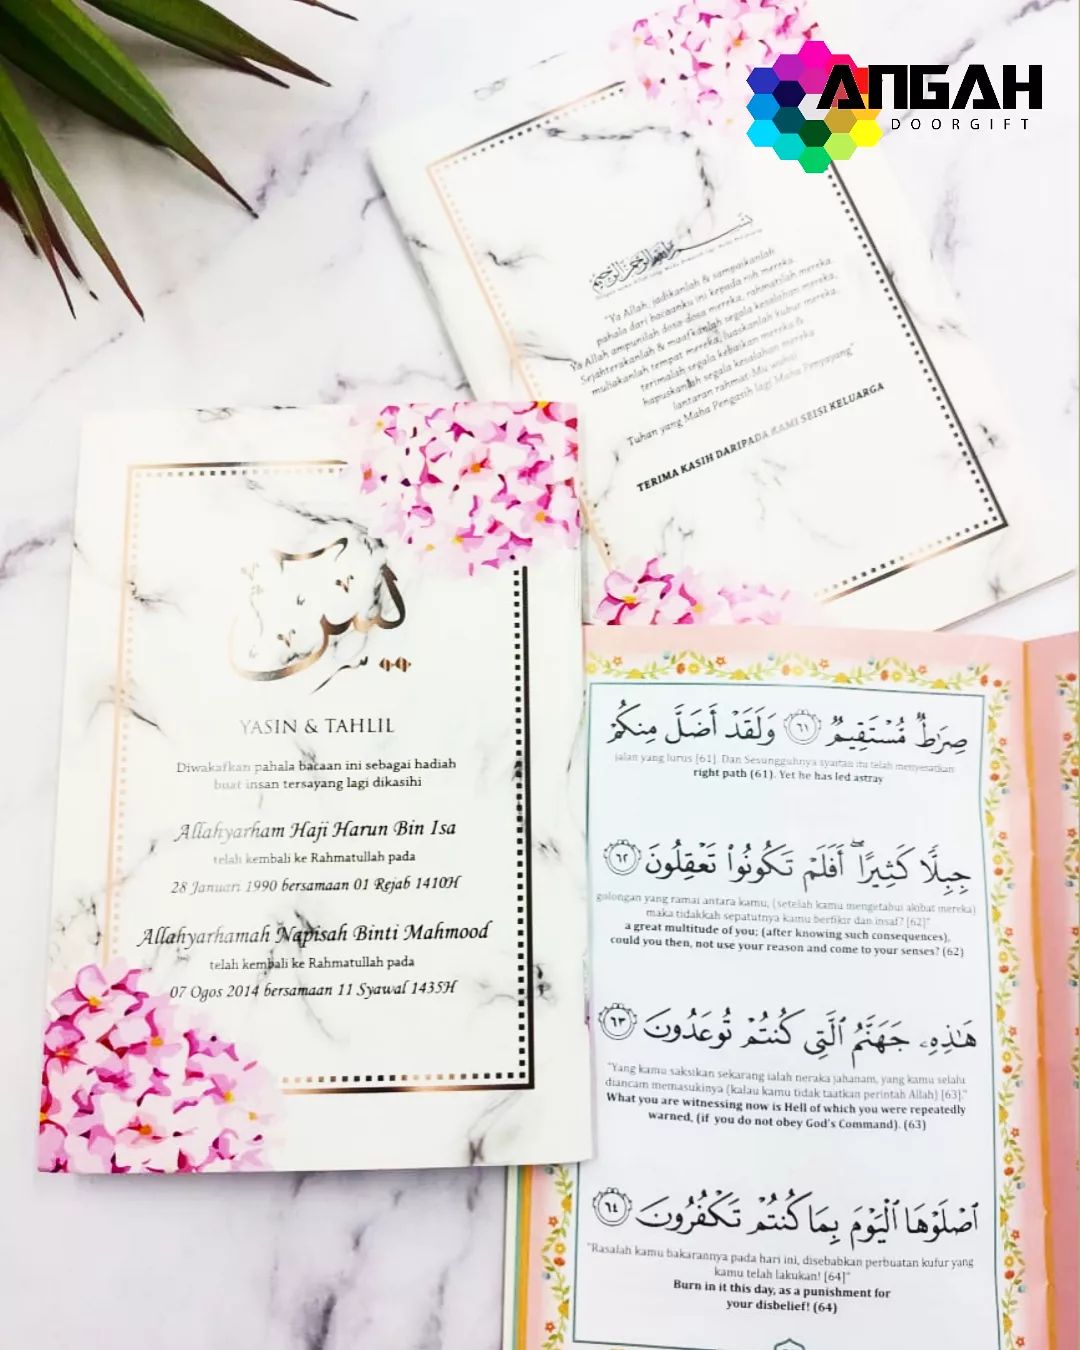 ANGAH
DOORGIFT
"Ya Allah, jadikanlah & sampaikanlah
pahala dari bacaanku ini kepada roh mereka.
Ya Allah ampunilah dosa-dosa mereka, rahmatilah mereka,
Sejahterakanlah & maafkanlah segala kesalahan mereka,
muliakanlah tempat mereka, luaskanlah kubur mereka,
terimalah segala kebaikan mereka &
hapuskanlah segala kesalahan mereka
lantaran rahmat-Mu wahai
Tuhan yang Maha Pengasih lagi Maha Penyayang"
TERIMA KASIH DARIPADA KAMI SEISI KELUARGA
يس
YASIN & TAHLIL
Diwakafkan pahala bacaan ini sebagai hadiah
buat insan tersayang lagi dikasihi
Allahyarham Haji Harun Bin Isa
telah kembali ke Rahmatullah pada
28 Januari 1990 bersamaan 01 Rejab 1410H
Allahyarhamah Napisah Binti Mahmood
telah kembali ke Rahmatullah pada
07 Ogos 2014 bersamaan 11 Syawal 1435H
صِرَٰطٌ مُّسْتَقِيمٌ ٦١ وَلَقَدْ أَضَلَّ مِنكُمْ
jalan yang lurus [61]. Dan Sesungguhnya syaitan itu telah menyesatkan
right path (61). Yet he has led astray
جِبِلًّا كَثِيرًا ۖ أَفَلَمْ تَكُونُوا۟ تَعْقِلُونَ ٦٢
golongan yang ramai antara kamu, (setelah kamu mengetahui akibat mereka)
maka tidakkah sepatutnya kamu berfikir dan insaf? [62]"
a great multitude of you; (after knowing such consequences),
could you then, not use your reason and come to your senses? (62)
هَٰذِهِۦ جَهَنَّمُ ٱلَّتِى كُنتُمْ تُوعَدُونَ ٦٣
"Yang kamu saksikan sekarang ialah neraka jahanam, yang kamu selalu
diancam memasukinya (kalau kamu tidak taatkan perintah Allah) [63]."
What you are witnessing now is Hell of which you were repeatedly
warned, (if you do not obey God's Command). (63)
ٱصْلَوْهَا ٱلْيَوْمَ بِمَا كُنتُمْ تَكْفُرُونَ ٦٤
"Rasalah kamu bakarannya pada hari ini, disebabkan perbuatan kufur yang
kamu telah lakukan! [64]"
Burn in it this day, as a punishment for
your disbelief! (64)